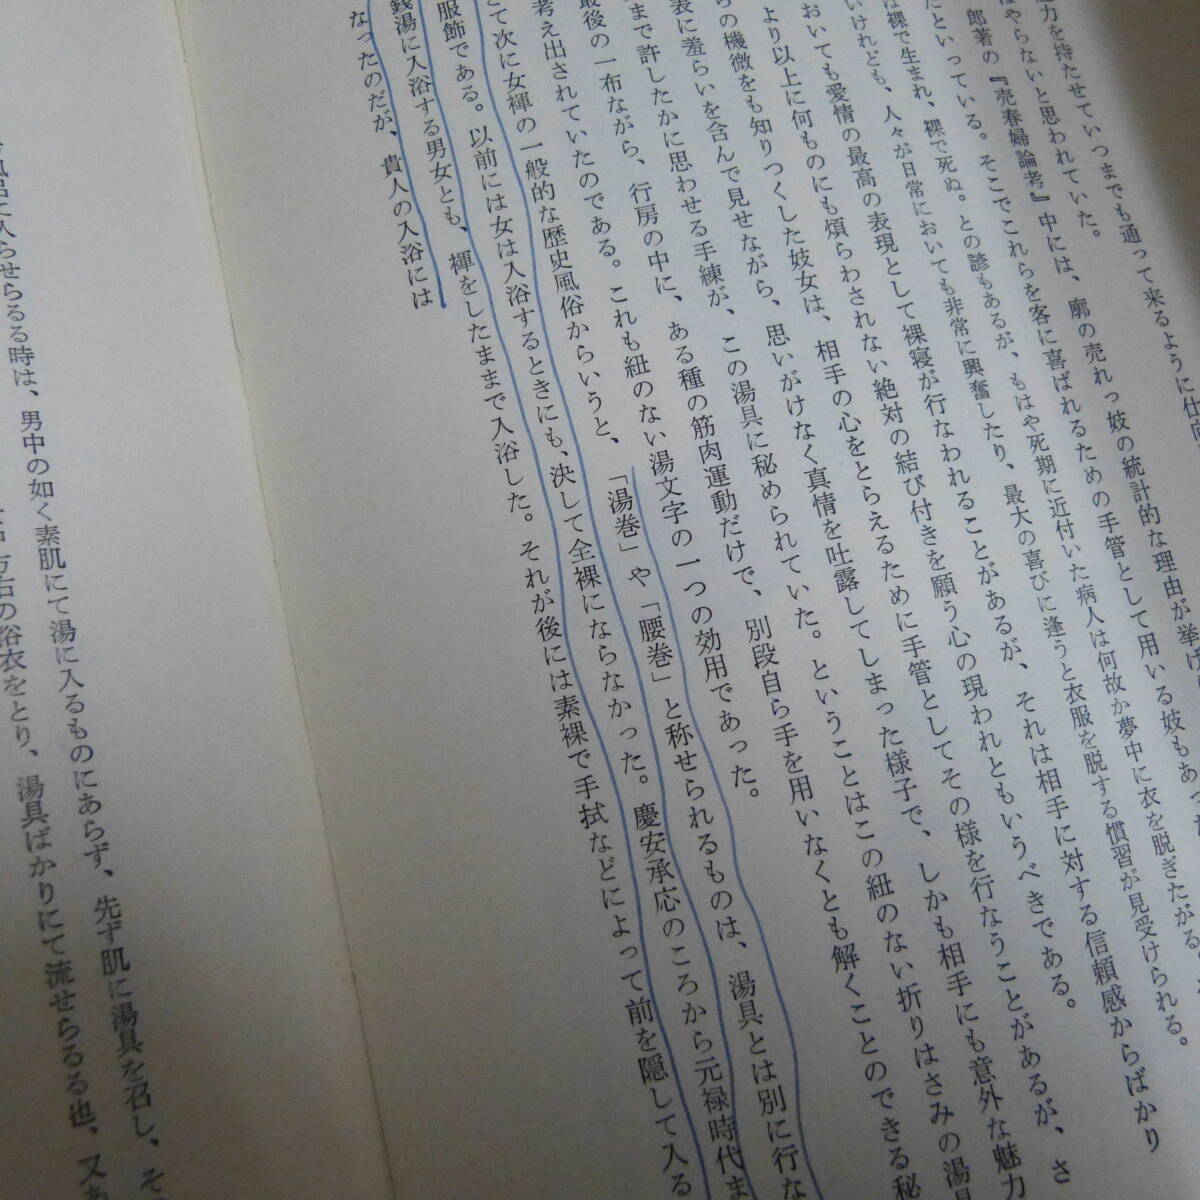 魅力を持たせていつまでも通って来るように仕向
はやらないと思われていた。
郎著の『売春婦論考』中には、廓の売れっ妓の統計的な理由が挙げ
たといっている。そこでこれらを客に喜ばれるための手管として用いる妓もあった
は裸で生まれ、裸で死ぬ。との諺もあるが、もはや死期に近付いた病人は何故か夢中に衣を脱ぎたがる。
いけれども、人々が日常においても非常に興奮したり、最大の喜びに逢うと衣服を脱する慣習が見受けられる。
おいても愛情の最高の表現として裸寝が行なわれることがあるが、それは相手に対する信頼感からばかり
より以上に何ものにも煩らわされない絶対の結び付きを願う心の現われともいうべきである。
らの機微をも知りつくした妓女は、相手の心をとらえるために手管としてその様を行なうことがあるが、さ
表に羞らいを含んで見せながら、思いがけなく真情を吐露してしまった様子で、しかも相手にも意外な魅力
まで許したかに思わせる手練が、この湯具に秘められていた。ということはこの紐のない折りはさみの湯具
最後の一布ながら、行房の中に、ある種の筋肉運動だけで、別段自ら手を用いなくとも解くことのできる秘
考え出されていたのである。これも紐のない湯文字の一つの効用であった。
さて次に女褌の一般的な歴史風俗からいうと、「湯巻」や「腰巻」と称せられるものは、湯具とは別に行な
服飾である。以前には女は入浴するときにも、決して全裸にならなかった。慶安承応のころから元禄時代ま
銭湯に入浴する男女とも、褌をしたままで入浴した。それが後には素裸で手拭などによって前を隠して入る
なったのだが、貴人の入浴には
風呂に入らせらるる時は、男中の如く素肌にて湯に入るものにあらず、先ず肌に湯具を召し、そ
右の浴衣をとり、湯具ばかりにて流せらるる也、又あ